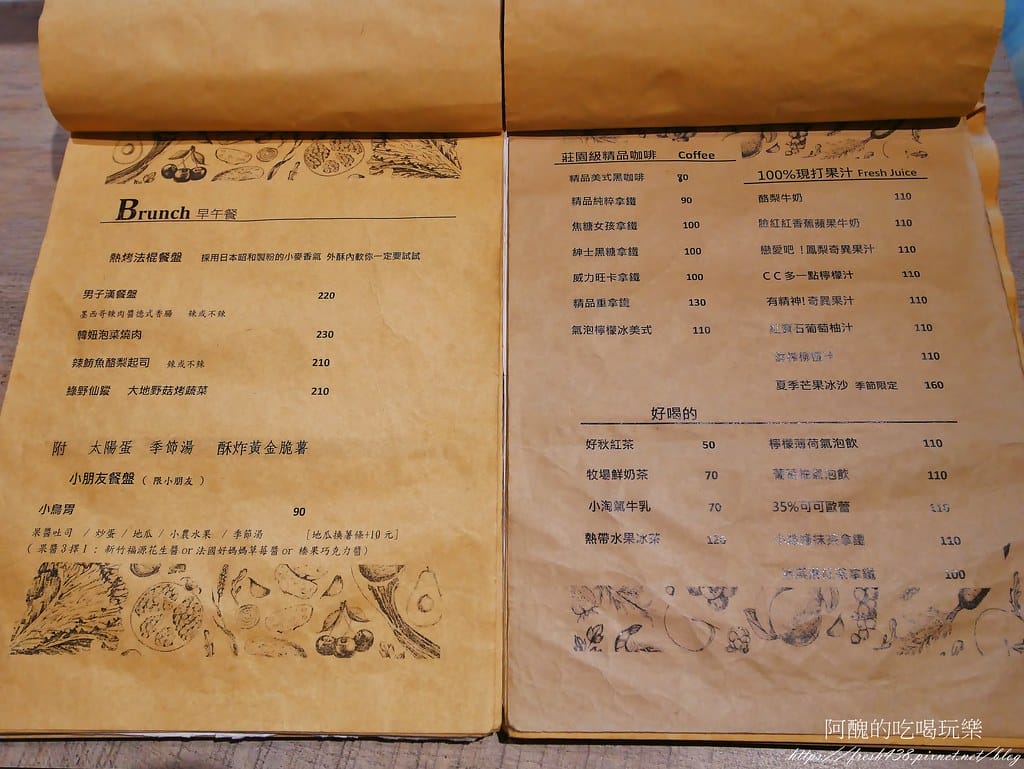 Brunch 早午餐
熱烤法棍餐盤 採用日本昭和製粉的小麥香氣 外酥內軟你一定要試試
男子漢餐盤 220
墨西哥辣肉醬德式香腸 辣或不辣
韓妞泡菜燒肉 230
辣鮪魚酪梨起司 辣或不辣 210
綠野仙蹤 大地野菇烤蔬菜 210
附 太陽蛋 季節湯 酥炸黃金脆薯
小朋友餐盤 ( 限小朋友 )
小鳥胃 90
果醬吐司 / 炒蛋 / 地瓜 / 小農水果 / 季節湯 [地瓜換薯條+10 元]
( 果醬 3 擇 1 : 新竹福源花生醬 or 法國好媽媽草莓醬 or 榛果巧克力醬)
莊園級精品咖啡 Coffee
精品美式黑咖啡 80
精品純粹拿鐵 90
焦糖女孩拿鐵 100
紳士黑糖拿鐵 100
威力旺卡拿鐵 100
精品重拿鐵 130
氣泡檸檬冰美式 110
100%現打果汁 Fresh Juice
酪梨牛奶 110
臉紅紅香蕉蘋果牛奶 110
戀愛吧！鳳梨奇異果汁 110
C C 多一點檸檬汁 110
有精神! 奇異果汁 110
石葡萄柚汁 110
110
夏季芒果冰沙 季節限定 160
好喝的
好秋紅茶 50
牧場鮮奶茶 70
小淘氣牛乳 70
熱帶水果冰茶 120
檸檬薄荷氣泡飲 110
葡萄柚氣泡飲 110
35%可可歐蕾 110
抹茶拿鐵 110
拿鐵 100
阿醜的吃喝玩樂
https://fresh438.pixnet.net/blog